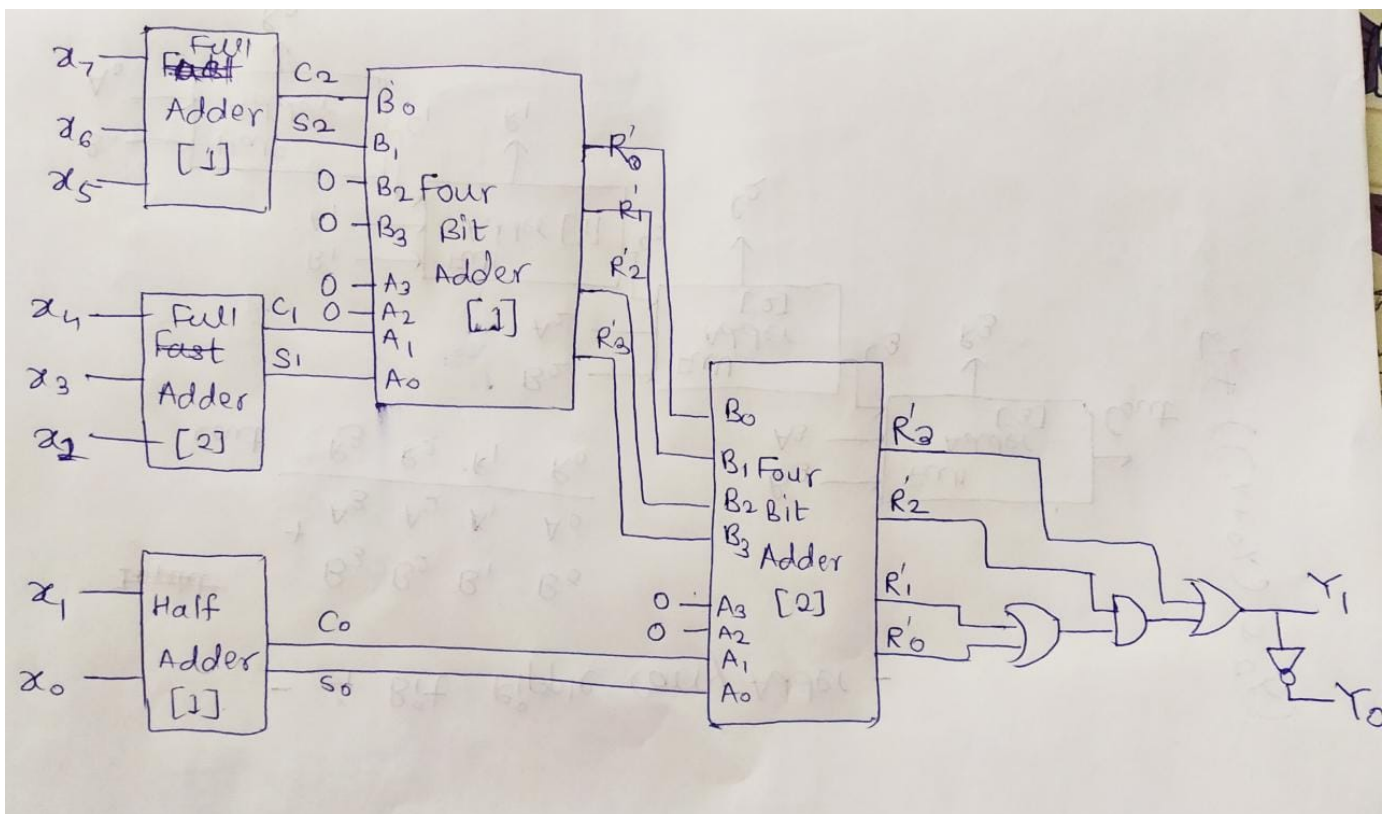 x7
x6
x5
Full
Fast
Adder
[1]
C2
S2
0
0
0
0
B0
B1
B2
B3
A3
A2
A1
A0
Four
Bit
Adder
[1]
R'0
R'1
R'2
R'3
x4
x3
x2
Full
Fast
Adder
[2]
C1
S1
x1
x0
Half
Adder
[1]
C0
S0
0
0
B0
B1
B2
B3
A3
A2
A1
A0
Four
Bit
Adder
[2]
R'3
R'2
R'1
R'0
Y1
Y0